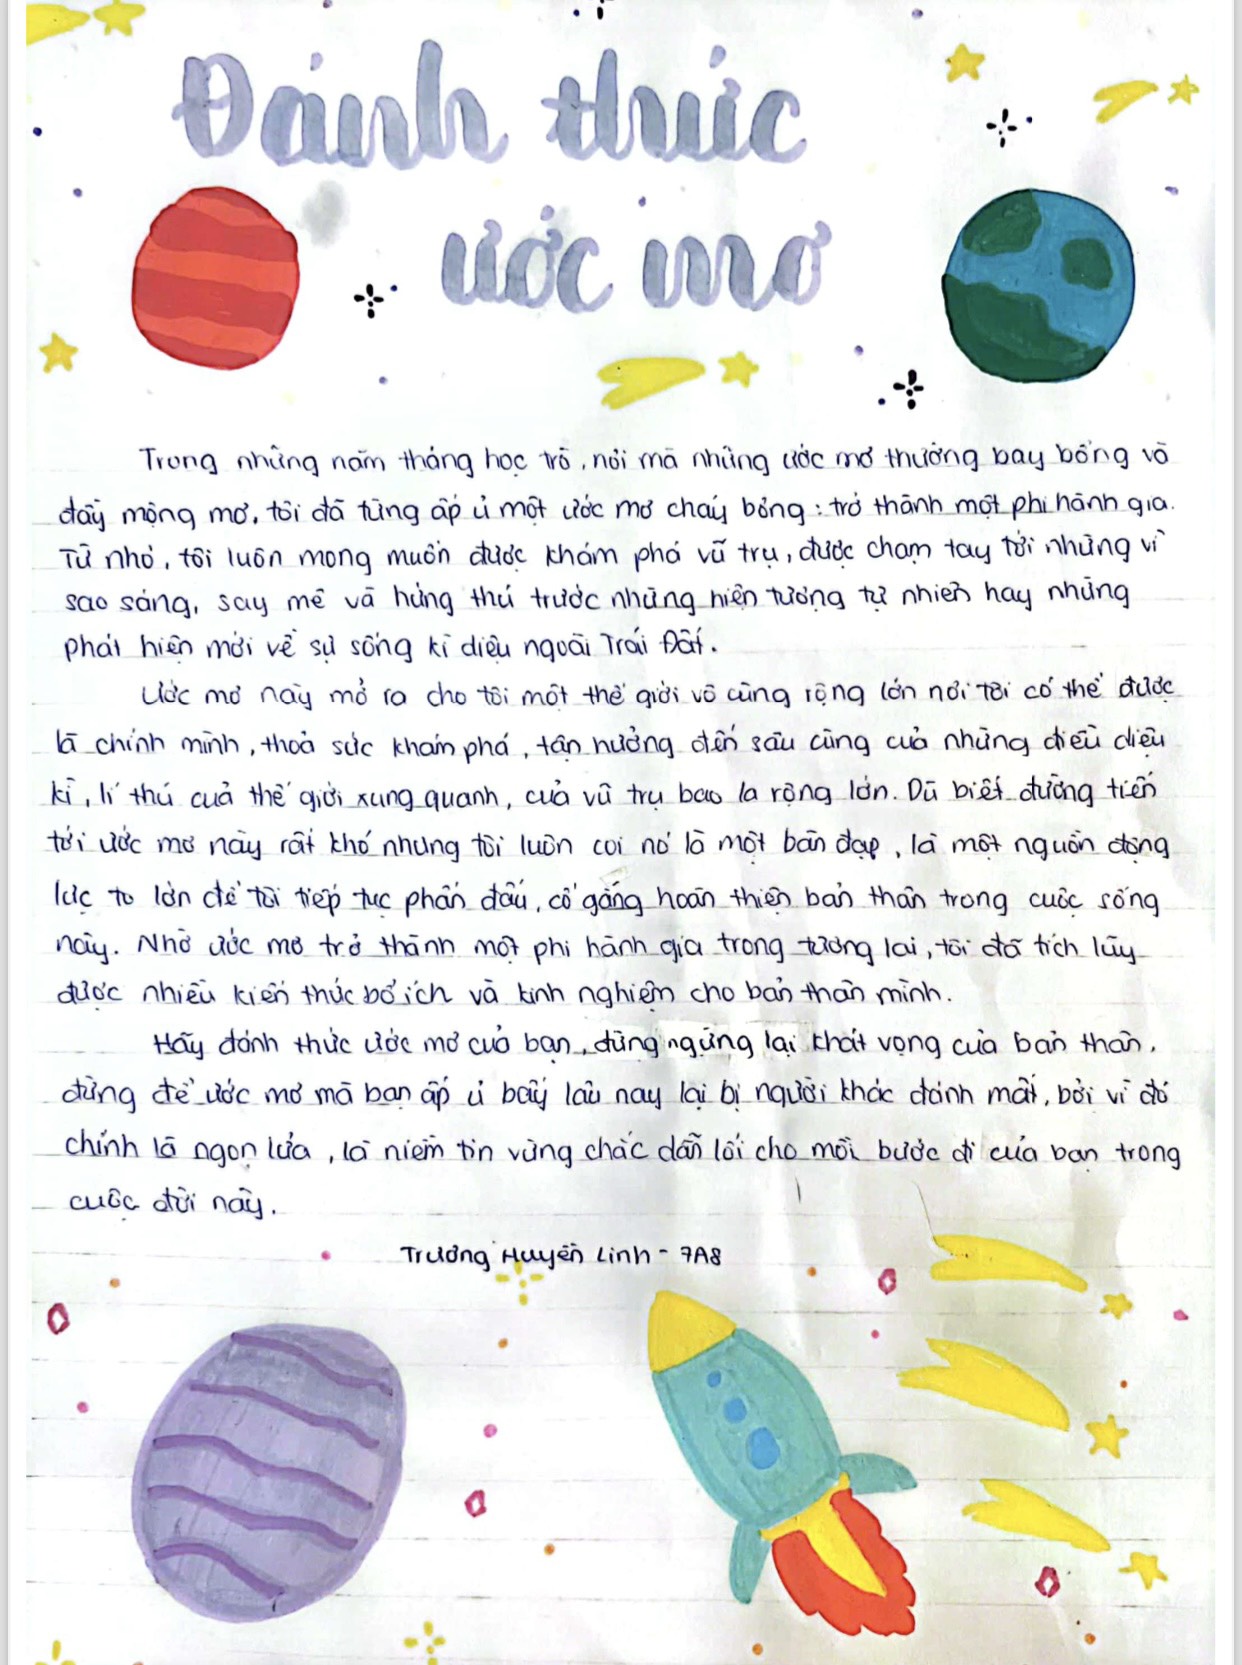 Đánh thức
ước mơ
Trong những năm tháng học trò, nơi mà những ước mơ thường bay bổng và
đầy mộng mơ, tôi đã từng ấp ủ một ước mơ cháy bỏng: trở thành một phi hành gia.
Từ nhỏ, tôi luôn mong muốn được khám phá vũ trụ, được chạm tay tới những vì
sao sáng, say mê và hứng thú trước những hiện tượng tự nhiên hay những
phát hiện mới về sự sống kì diệu ngoài Trái Đất.
Ước mơ này mở ra cho tôi một thế giới vô cùng rộng lớn nơi tôi có thể được
là chính mình, thoả sức khám phá, tận hưởng đến sâu cùng của những điều diệu
kì, lí thú của thế giới xung quanh, của vũ trụ bao la rộng lớn. Dù biết đường tiến
tới ước mơ này rất khó nhưng tôi luôn coi nó là một bàn đạp, là một nguồn động
lực to lớn để tôi tiếp tục phấn đấu, cố gắng hoàn thiện bản thân trong cuộc sống
này. Nhờ ước mơ trở thành một phi hành gia trong tương lai, tôi đã tích lũy
được nhiều kiến thức bổ ích và kinh nghiệm cho bản thân mình.
Hãy đánh thức ước mơ của bạn, đừng ngừng lại khát vọng của bản thân,
đừng để ước mơ mà bạn ấp ủ bấy lâu nay lại bị người khác đánh mất, bởi vì đó
chính là ngọn lửa, là niềm tin vững chắc dẫn lối cho mỗi bước đi của bạn trong
cuộc đời này.
Trương Huyền Linh - 7A8